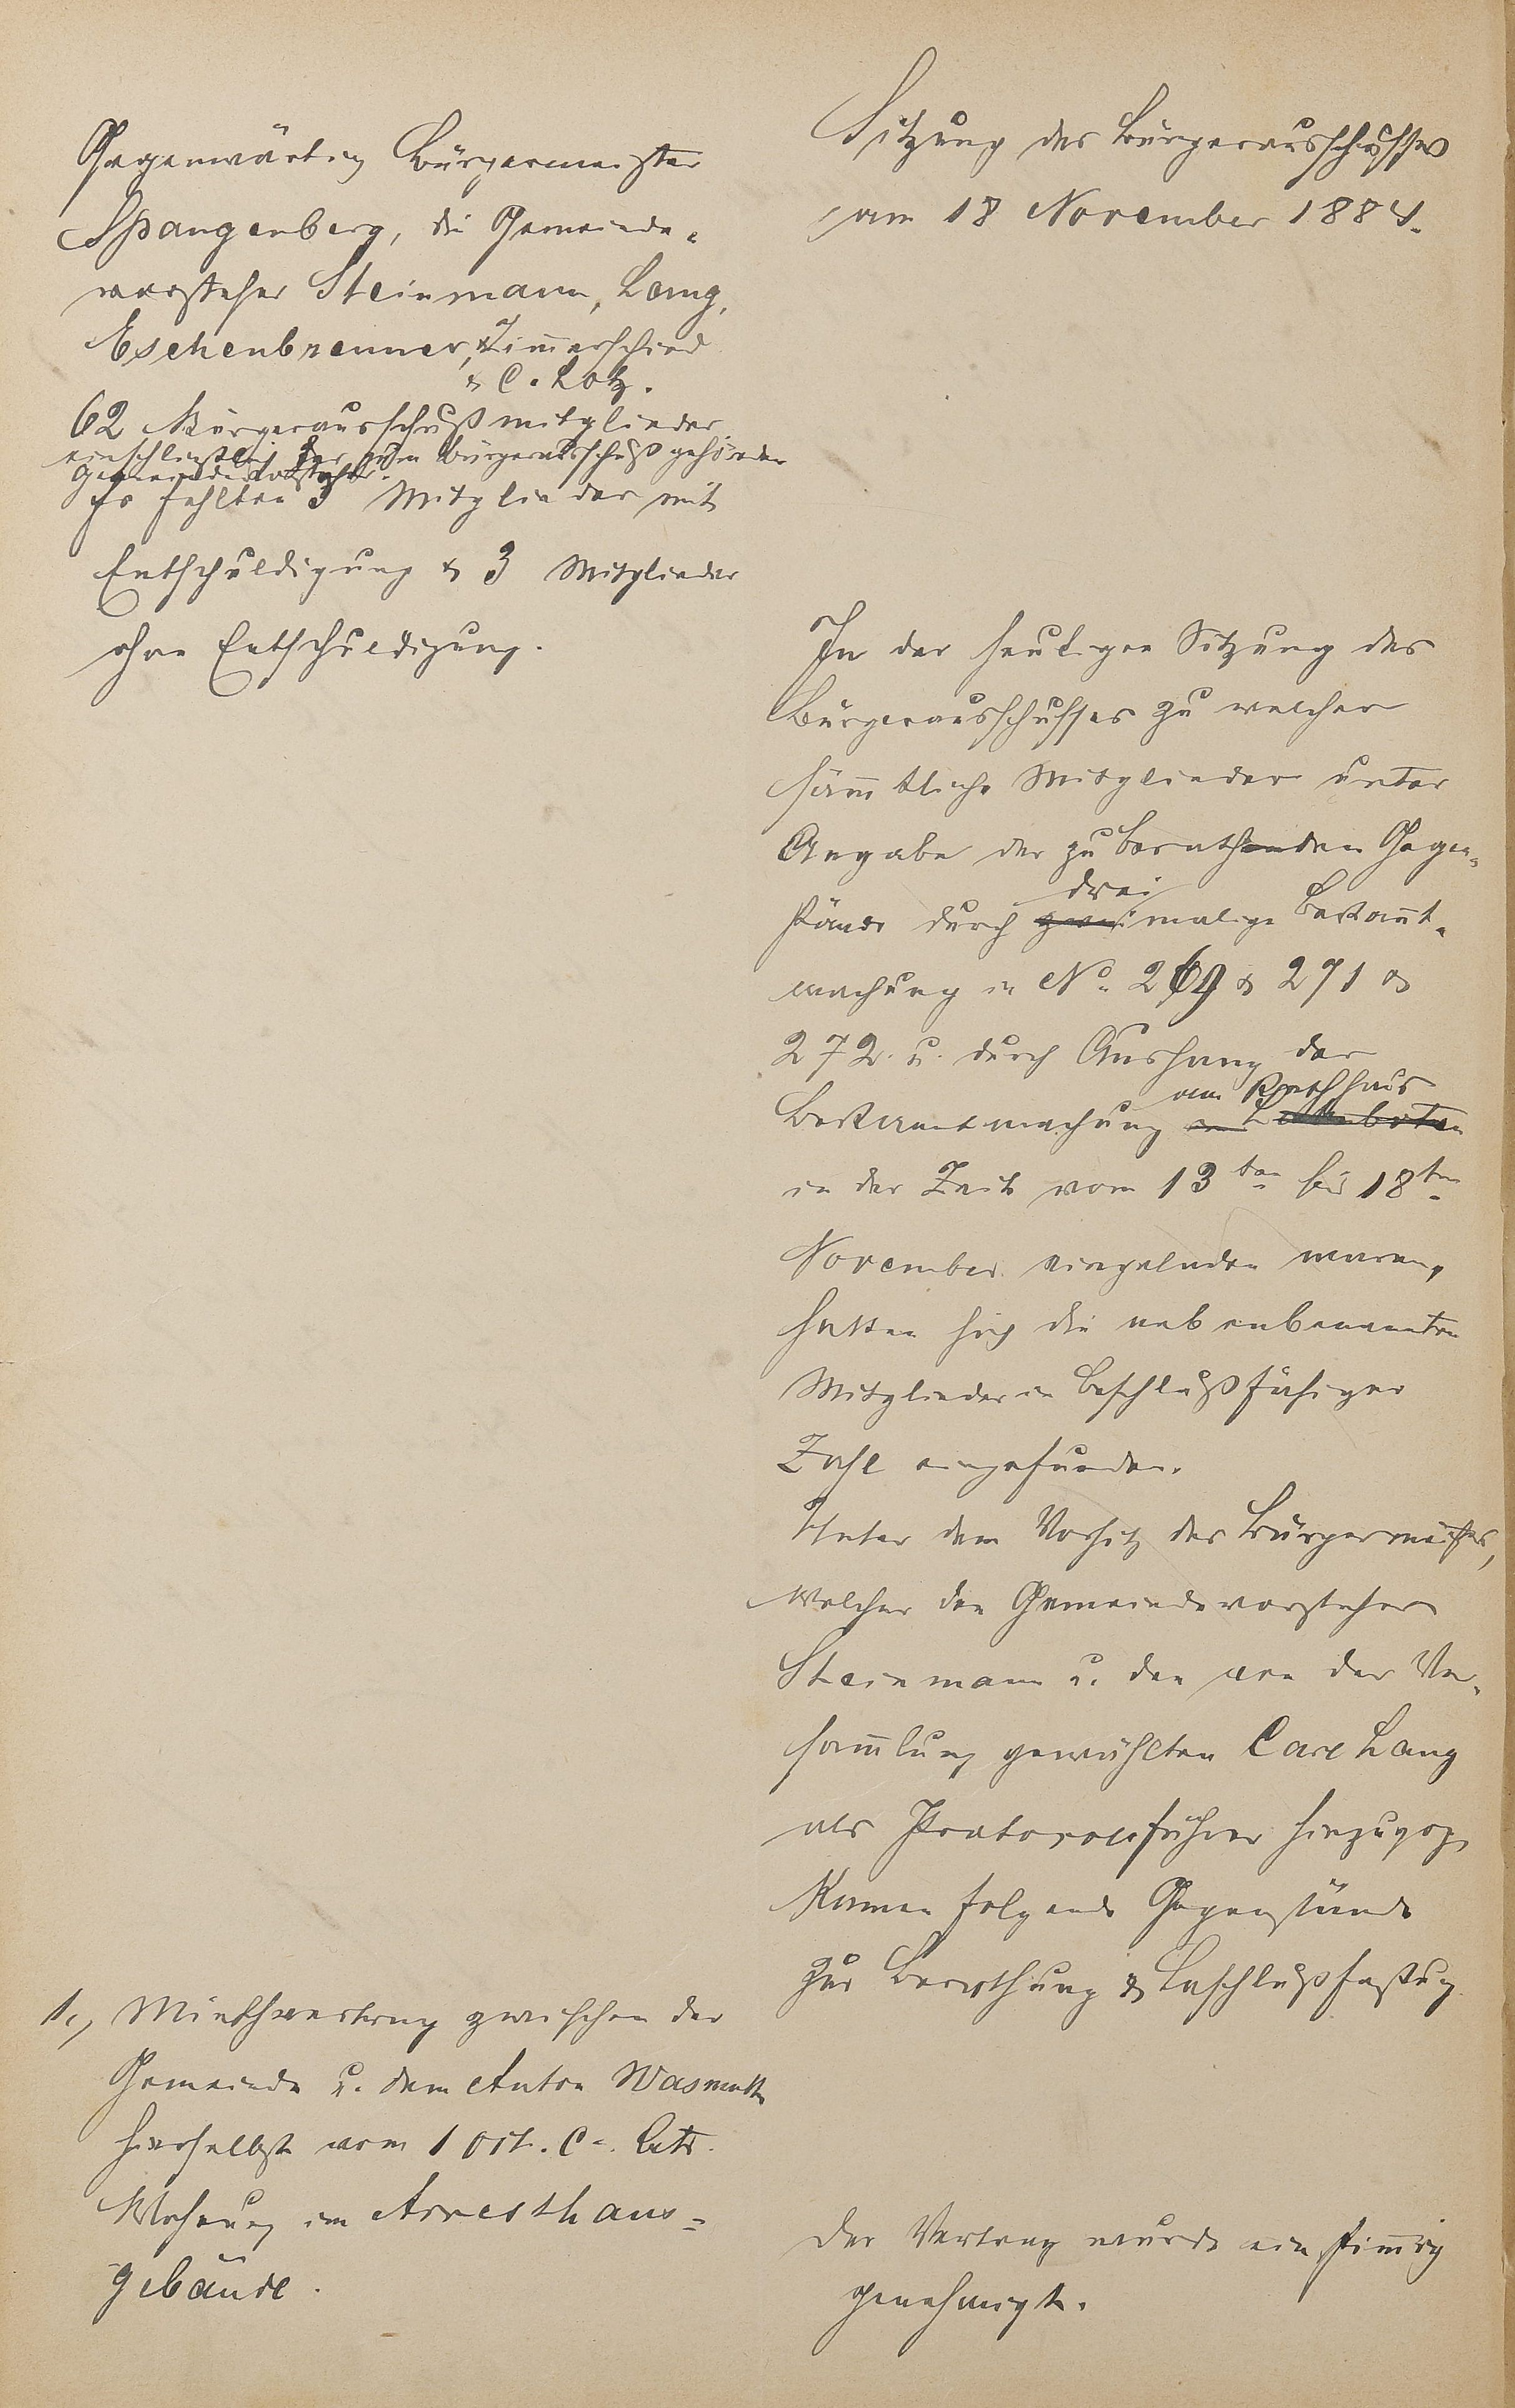 Gegenwärtig Bürgermeister
Spangenberg, die Gemeinde-
vorsteher Steinmann, Lang,
Eschenbrenner, Zimmerschied
& C. Lotz.
62 Bürgerausschußmitglieder
einschließlich der zum Bürgerausschuß gehörenden
Gemeindevorsteher.
Es fehlten 3 Mitglieder mit
Entschuldigung & 3 Mitglieder
ohne Entschuldigung.
1., Miethvertrag zwischen der
Gemeinde u. dem Anton Wasmuth
hierselbst vom 1 Oct. c. btr.
Wohnung im Arresthaus=
gebäude.
Sitzung des Bürgerausschusses
am 18 November 1884.
In der heutigen Sitzung des
Bürgerausschusses zu welcher
sämmtliche Mitglieder unter
Angabe der zu berathenden Gegen-
drei
stände durch zweimalige Bekannt-
machung in No. 269 & 271 &
272. u. durch Aushang der
am Rathhaus
Bekanntmachung
in der Zeit vom 13ten bis 18ten
November eingeladen waren,
hatten sich die nebenbenannten
Mitglieder in beschlußfähiger
Zahl eingefunden.
Unter dem Vorsitz des Bürgermeisters,
welcher den Gemeindevorsteher
Steinmann u. den von der Ver-
sammlung gewählten Carl Lang
als Protocollführer hinzuzog,
kamen folgende Gegenstände
zur Berathung & Beschlußfassung.
Der Vertrag wurde einstimmig
genehmigt.